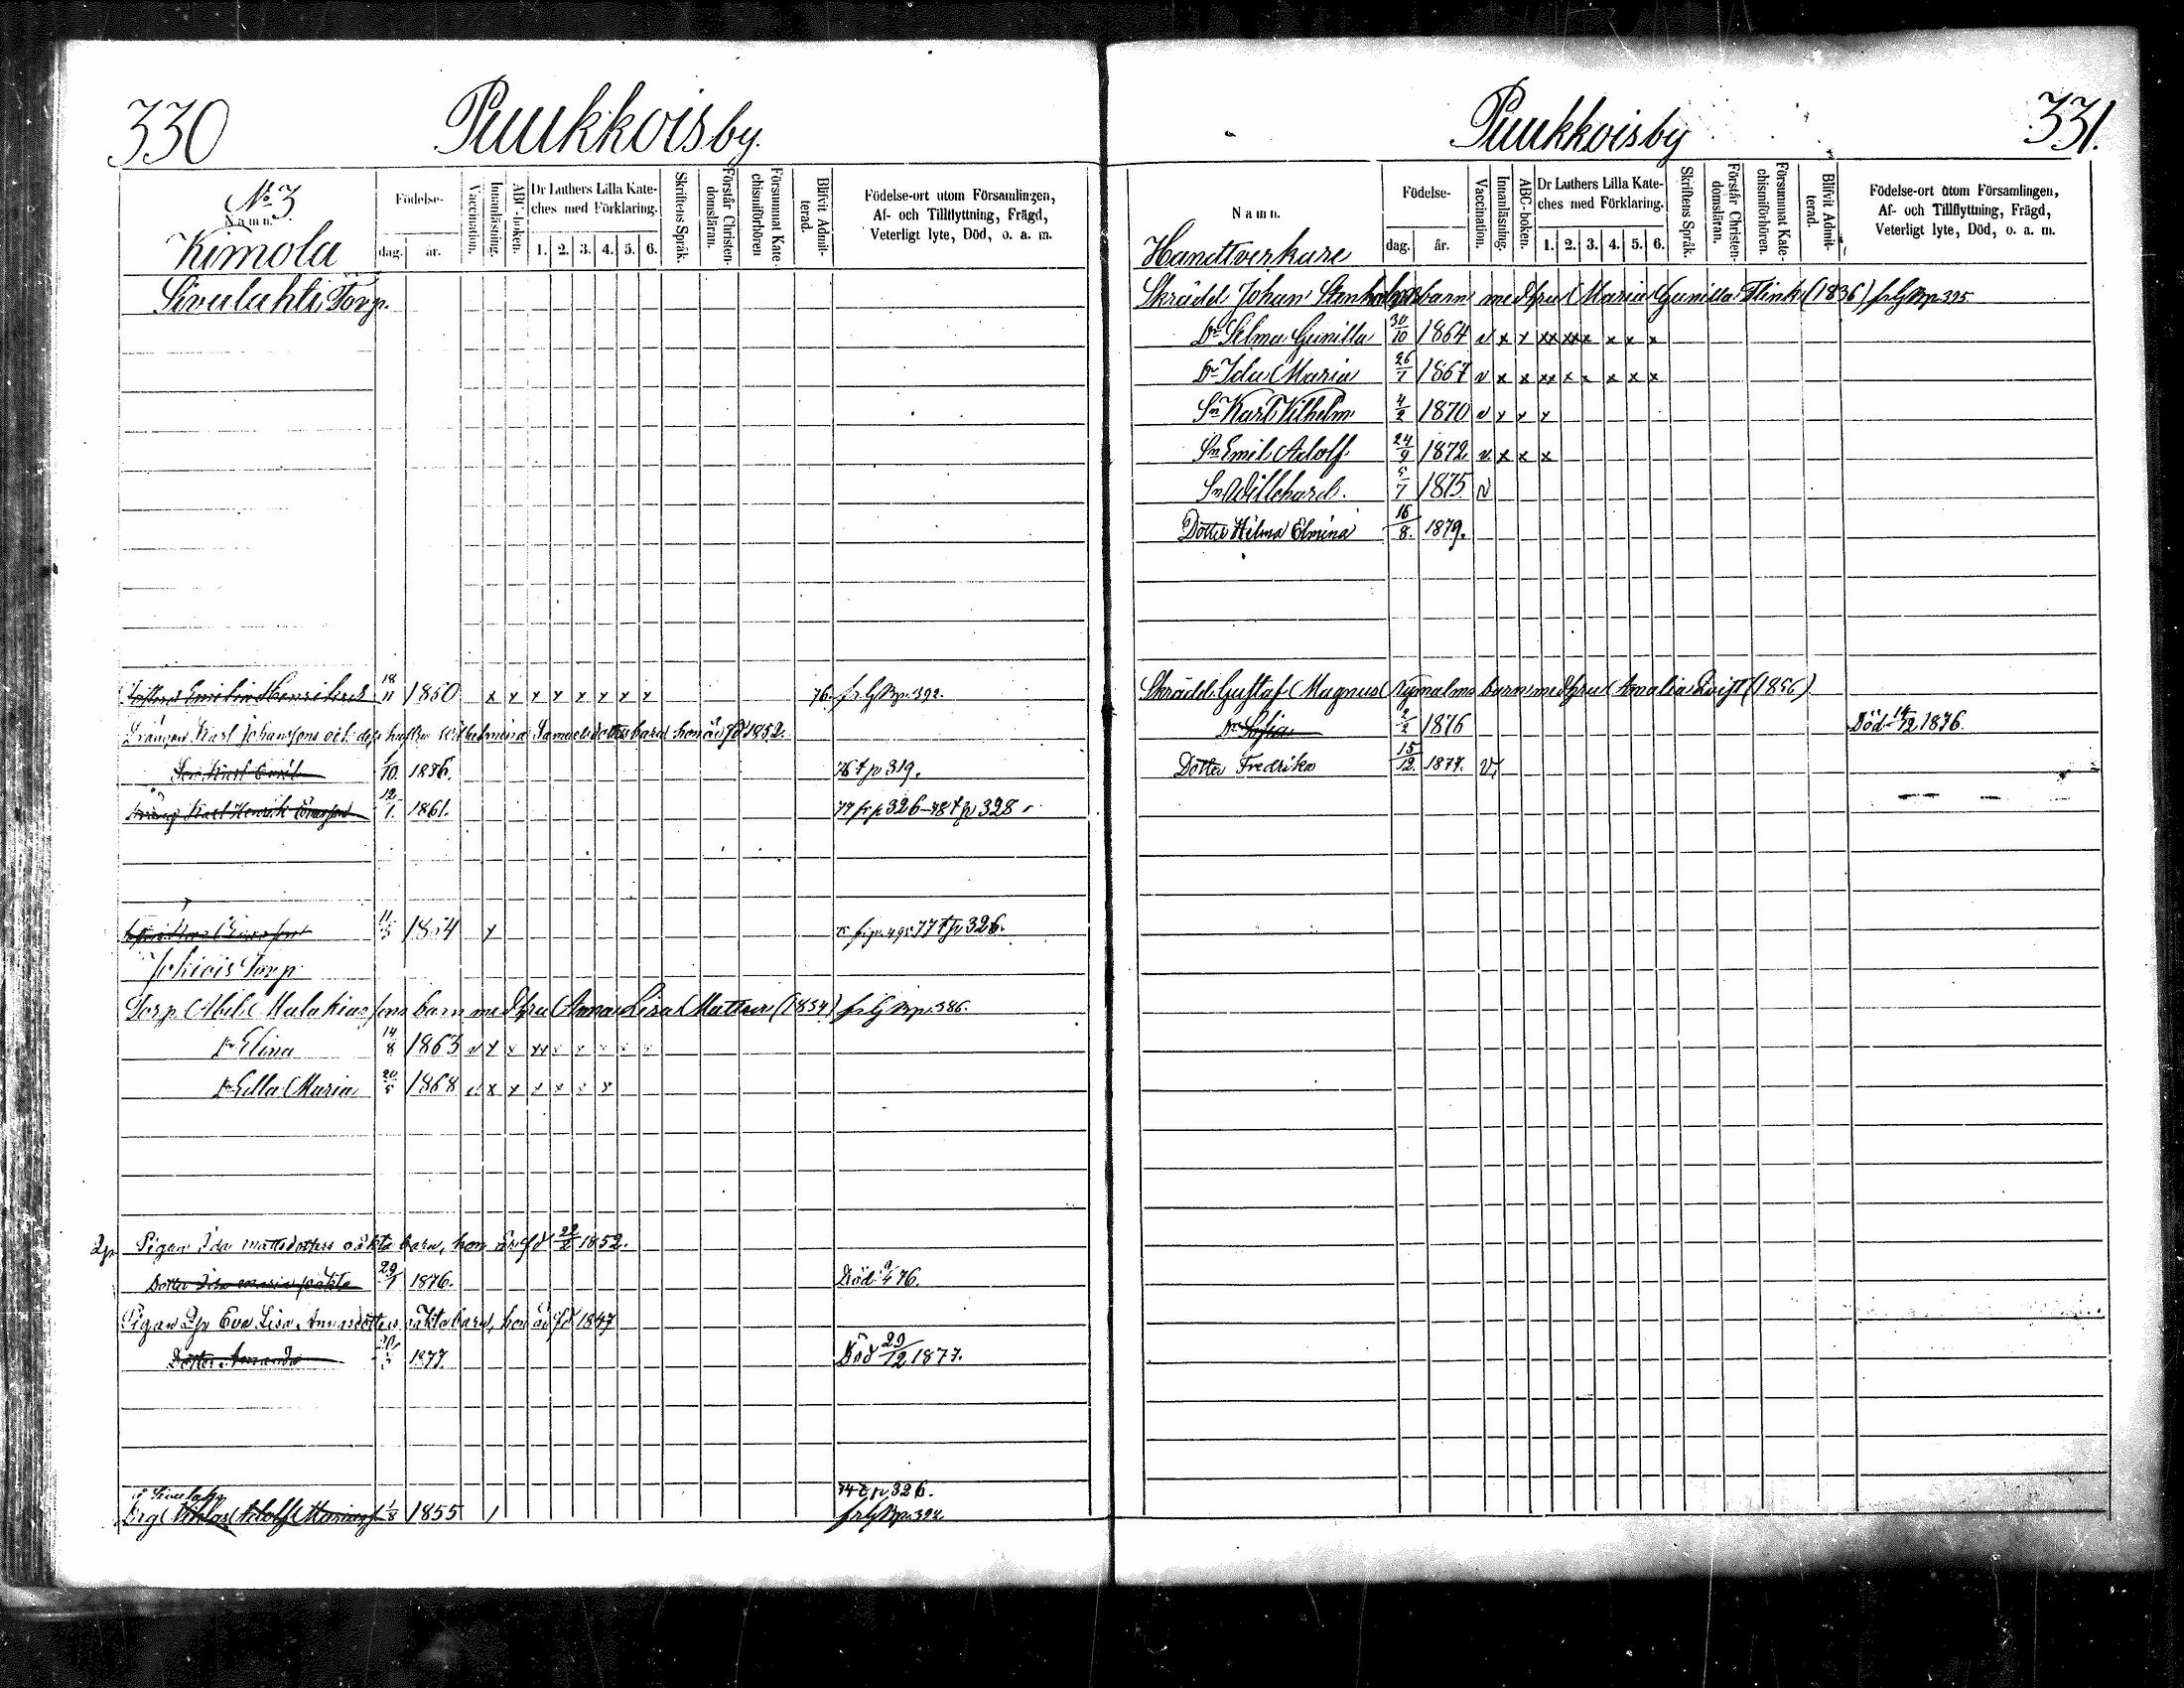 330
Puukkoisby.
No 3
Namn.
Kimola
Födelse-
dag.
år.
Vaccination.
Innanläsning.
ABC-boken.
Dr Luthers Lilla Kate-
ches med Förklaring.
1. 2. 3. 4. 5. 6.
Skriftens Språk.
Förstår Christen-
domsläran.
Försummat Kate-
chismiförhören
Blifvit Admit-
terad.
Födelse-ort utom Församlingen,
Af- och Tillflyttning, Frägd,
Veterligt lyte, Död, o. a. m.
Sivulahti Torp.
18/11 1850 x x x x x x x x 76. fr G Bp. 392.
Drängen Karl Johanssons och dess hustru Wilhelmina Samuelsdotters barn hon är fd 1852.
Son Karl Emil /10. 1876. 76 t p 319.
Dräng Karl Henrik 12/1. 1861. 77 fr p 326 - 78 t p 328
11/ 1854 x 77 t p 326.
Torp
Torp. Abel Malakiassons barn med hru Anna Lisa Mattsr (1834) fr G Bp. 386.
Dr Elina 14/8 1863 v x x xx x x x x x
Dr Ella Maria 20/5 1868 v x x x x x x
Qp Pigan Ida Mattsdotters oäkta barn, hon är fd 22/2 1852.
Dotter Ida Maria oäkta 29/1 1876. Död /4 76.
Pigan Qp Eva Lisa Annasdotters oäkta barn, hon är fd 1847
Dotter Amanda 1877 Död 29/12 1877.
77 t p. 326.
Drg Niklas Adolf 1/8 1855 / fr G Bp. 392
331.
Puukkoisby
Namn.
Handtverkare
Födelse-
dag.
år.
Vaccination.
Innanläsning.
ABC-boken.
Dr Luthers Lilla Kate-
ches med Förklaring.
1. 2. 3. 4. 5. 6.
Skriftens Språk.
Förstår Christen-
domsläran.
Försummat Kate-
chismiförhören.
Blifvit Admit-
terad.
Födelse-ort utom Församlingen,
Af- och Tillflyttning, Frägd,
Veterligt lyte, Död, o. a. m.
Skrädd. Johan Stenholms barn med hru Maria Gunilla Flink (1836) fr G Bp. 395
Dr Selma Gunilla 30/10 1864 v x x xx xx x x x x
Dr Ida Maria 26/7 1867 v x x xx x x x x x
Sn Karl Vilhelm 4/2 1870 v x x x
Sn Emil Adolf 24/9 1872 v x x x
Sn Willehard. 5/7 1875 v
Dotter Hilma Elmina 16/8. 1879.
Skrädd. Gustaf Magnus Nymalms barn med hru Amalia Qvist (1856)
Dr Sofia 2/2 1876 Död 14/12 1876.
Dotter Fredrika 15/12. 1877. v.